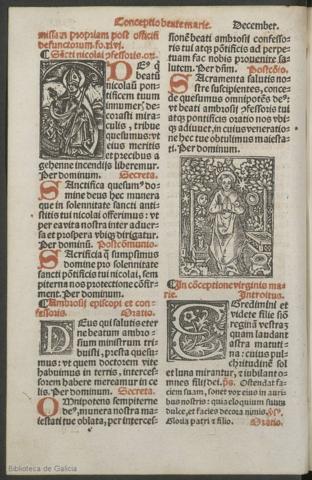 Conceptio beate marie. December.
missa3 propriam post officiũ
defunctorum.fo.xlvj.
¶ Sc̃ti nicolai ꝯfessoris.or̃.
DEus q̃
beatũ
nicolaũ pon
tificem tuum
innumer̃ de
corasti mira
culis, tribue
quesumus: vt
eius meritis
et precibus a
gehenne incendijs liberemur.
Per dominum. Secreta.
SAnctifica quesum⁹ do
mine deus hec munera
que in solemnitate sancti anti
stitis tui nicolai offerimus: vt
per ea vita nostra inter aduer
sa et prospera vbiq̃ dirigatur.
Per dominũ. Postcõmunio.
SAcrificia q̃ sumpsimus
domine pro solemnitate
sancti põtificis tui nicolai, sem
piterna nos protectione cõfir
ment. Per dominum.
¶ Ambrosij episcopi et con
fessoris. Oratio.
DEus qui salutis eter
ne beatum ambro
sium ministrum tri
buisti, presta quesu
mus: vt quem doctorem vite
habuimus in terris, intercef
sorem habere mereamur in ce
lis. Per dominum. Secreta.
OMnipotens sempiterne
de⁹, munera nostra ma
iestati tue oblata, per interces
sionẽ beati ambrosij confesso
ris tui atq3 pontificis ad perpe
tuam fac nobis prouenire sa
lutem. Per dñm. Postcõio.
SAcramenta salutis no
stre suscipientes, conce
de quesumus omnipotẽs de⁹:
vt beati ambrosij ꝯfessoris tui
atq3 pontificis oratio nos vbi
q3 adiuuet, in cuius veneratio
ne hec tue obtulimus maiesta
ti. Per dominum.
¶ In cõceptione virginis ma
rie. Introitus.
EGredimini et
videte filie siõ
reginã vestrã3
quam laudant
astra matuti
na: cuius pul
chritudinẽ sol
et luna mirantur, et iubilant o
mnes filij dei. p̃s. Ostende fa
ciem tuam, sonet vox eius in auri
bus nostris: quia eloquium suum
dulce, et facies decora nimis. ℣.
Gloria patri et filio. Oratio.
Biblioteca de Galicia